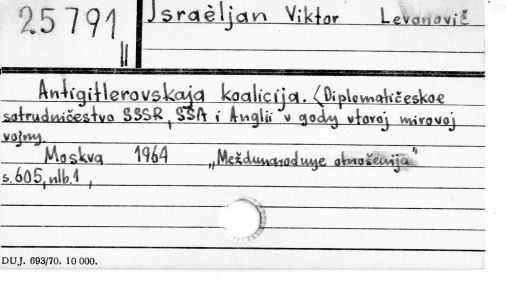 25791
II
Israèljan Viktor Levonovič
Antigitlerovskaja koalicija. (Diplomatičeskoe
sotrudničestvo SSSR, SŠA i Anglii v gody vtoroj mirovoj
vojny.
Moskva 1964 „Meždunarodnye otnošenija"
s. 605, nlb. 1,
DUJ. 693/70. 10 000.